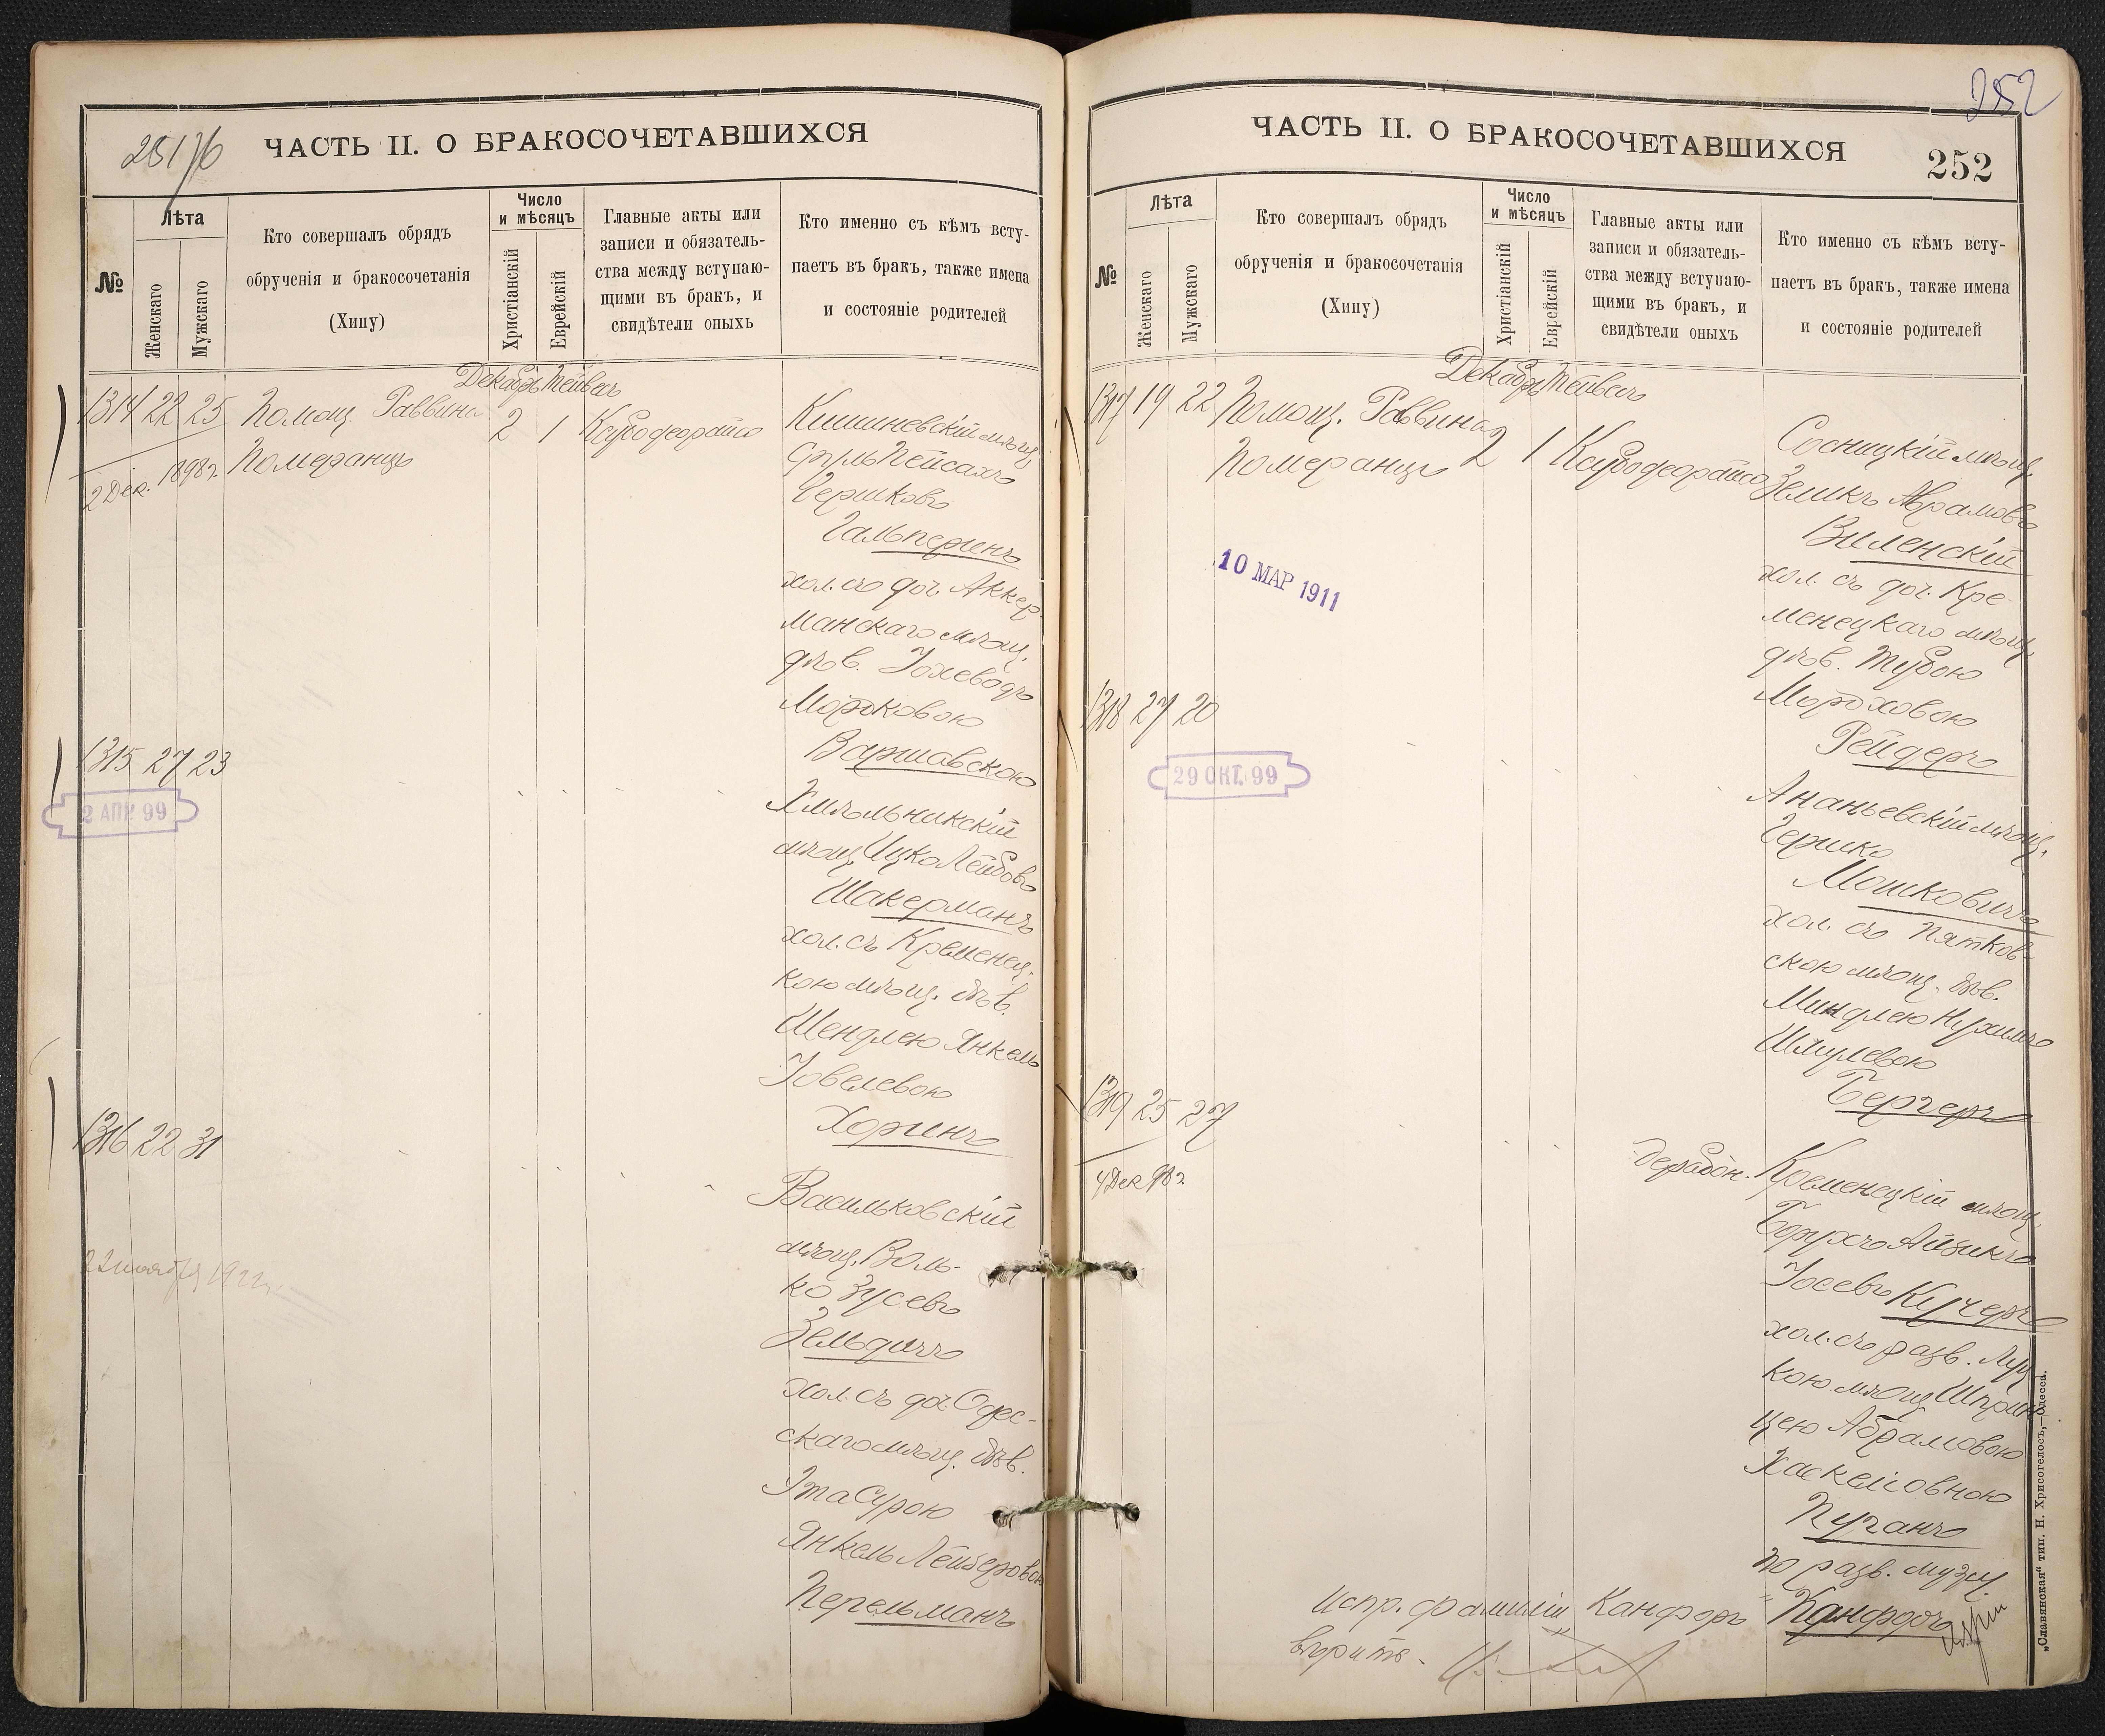 251 об
ЧАСТЬ II. О БРАКОСОЧЕТАВШИХСЯ
№
Лѣта
Женскаго
Мужскаго
Кто совершалъ обрядъ
обрученія и бракосочетанія
(Хипу)
Число
и мѣсяцъ
Христіанскій
Еврейскій
Главные акты или
записи и обязатель-
ства между вступаю-
щими въ бракъ, и
свидѣтели оныхъ
Кто именно съ кѣмъ всту-
паетъ въ бракъ, также имена
и состояніе родителей
Декабрь Тейвесъ
1314 22 25 Помощ. Раввина 2 1
2 Дек. 1898 г. Померанцъ
Кишиневскій мѣщ.
Сруль Пейсахъ
Гершковъ
Гальперинъ
хол. съ доч. Аккер
манскаго мѣщ.
дѣв. Іохеводъ
Мордковою
Варшавскою
1315 27 23
2 АПР 99
Хмѣльникскій
мѣщ. Ицко Лейбовъ
Шакерманъ
хол. съ Кременец.
кою мѣщ. дѣв.
Шендлею Янкель
Іовелевою
Хоринъ
1316 22 31
22 ноября 1922 г.
Васильковскій
мѣщ. Воль-
ко Зусевъ
Зельдичъ
хол. съ доч. Одес-
скаго мѣщ. дѣв.
Эта Сурою
Янкель Лейзеровою
Перельманъ
252
ЧАСТЬ II. О БРАКОСОЧЕТАВШИХСЯ
252
№
Лѣта
Женскаго
Мужскаго
Кто совершалъ обрядъ
обрученія и бракосочетанія
(Хипу)
Число
и мѣсяцъ
Христіанскій
Еврейскій
Главные акты или
записи и обязатель-
ства между вступаю-
щими въ бракъ, и
свидѣтели оныхъ
Кто именно съ кѣмъ всту-
паетъ въ бракъ, также имена
и состояніе родителей
Декабрь Тейвесъ
1317 19 22 Помощ. Раввина 2 1
Померанцъ
10 МАР 1911
Сосницкій мѣщ.
Зеликъ Абрамовъ
Виленскій
хол. съ доч. Кре-
менецкаго мѣщ.
дѣв. Тубою
Мордховою
Рейдеръ
1318 27 20
29 ОКТ. 99
Ананьевскій мѣщ.
Гершко
Мошковичъ
хол. съ Пятков-
скою мѣщ. дѣв.
Миндлею Нухимъ
Шмулевою
Бергеръ
1319 25 27
4 Дек 98 г.
Кременецкій мѣщ.
Борухъ Айзикъ
Іосевъ Кучеръ
хол. съ разв. Луц
кою мѣщ. Шприн
цею Абрамовою
Хаскелiовною
Пуганъ
по разв. мужу
Канфоръ
Испр. фамиліи „Канфоръ“
вѣрить.
„Славянская“ тип. Н. Хрисогелосъ,—Одесса.